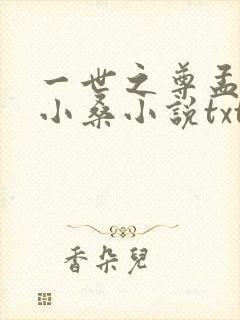 一世之尊孟
小桑小説txt
香朵兒